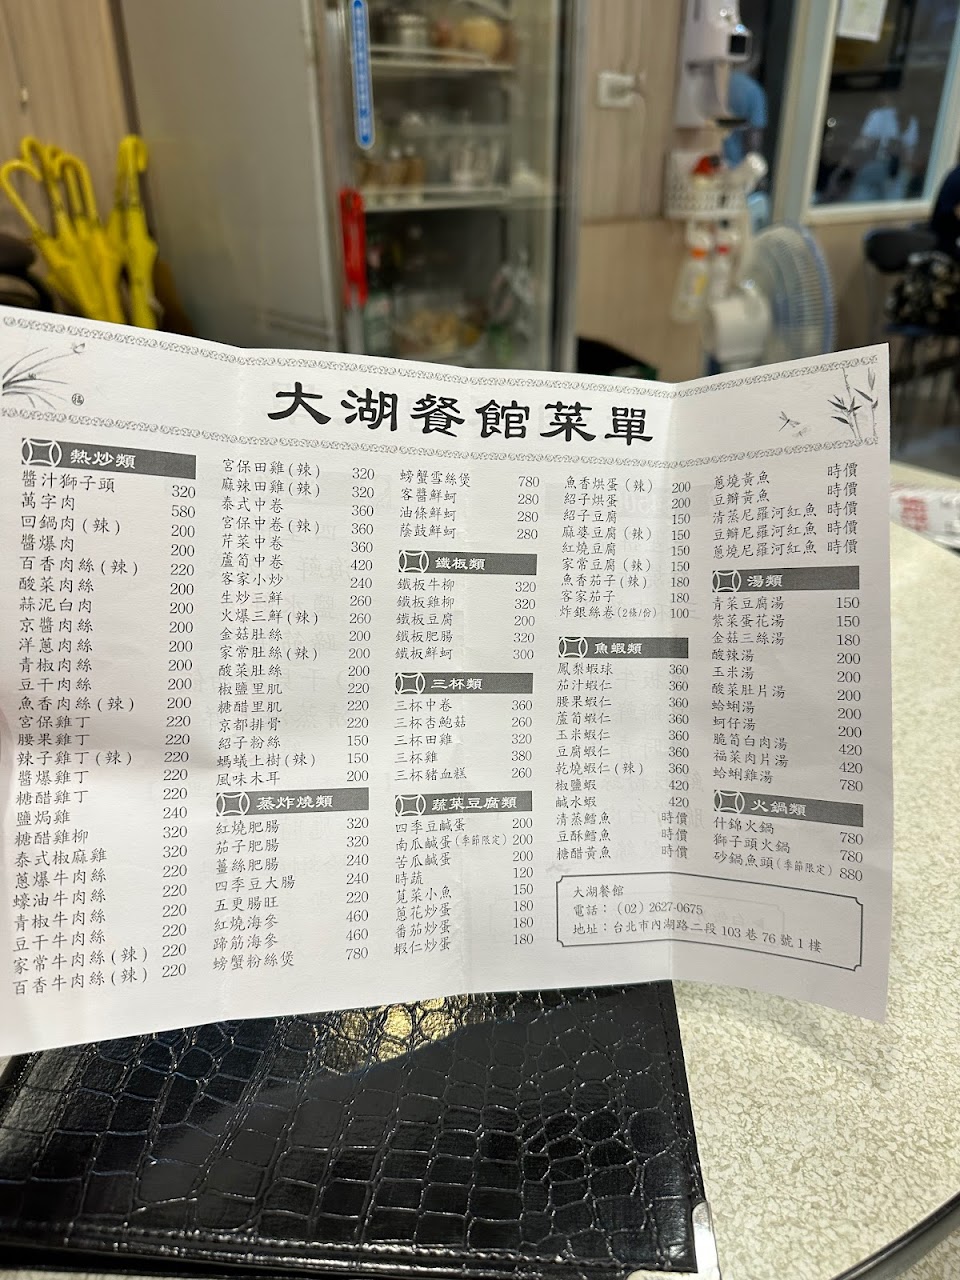 大湖餐館菜單
熱炒類
醬汁獅子頭 320
萬字肉 580
回鍋肉(辣) 200
醬爆肉 200
百香肉絲(辣) 220
酸菜肉絲 200
蒜泥白肉 200
京醬肉絲 200
洋蔥肉絲 200
青椒肉絲 200
豆干肉絲 200
魚香肉絲(辣) 200
宮保雞丁 220
腰果雞丁 220
辣子雞丁(辣) 220
醬爆雞丁 220
糖醋雞丁 220
鹽焗雞 240
糖醋雞柳 320
泰式椒麻雞 320
蔥爆牛肉絲 220
蠔油牛肉絲 220
青椒牛肉絲 220
豆干牛肉絲 220
家常牛肉絲(辣) 220
百香牛肉絲(辣) 220
宮保田雞(辣) 320
麻辣田雞(辣) 320
泰式中卷 360
宮保中卷(辣) 360
芹菜中卷 360
蘆筍中卷 420
客家小炒 240
生炒三鮮 260
火爆三鮮(辣) 260
金菇肚絲 200
家常肚絲(辣) 200
酸菜肚絲 200
椒鹽里肌 220
糖醋里肌 220
京都排骨 220
紹子粉絲 150
螞蟻上樹(辣) 150
風味木耳 200
蒸炸燒類
紅燒肥腸 320
茄子肥腸 320
薑絲肥腸 240
四季豆大腸 240
五更腸旺 220
紅燒海參 460
蹄筋海參 460
螃蟹粉絲煲 780
螃蟹雪絲煲 780
客醬鮮蚵 280
油條鮮蚵 280
蔭鼓鮮蚵 280
鐵板類
鐵板牛柳 320
鐵板雞柳 320
鐵板豆腐 200
鐵板肥腸 320
鐵板鮮蚵 300
三杯類
三杯中卷 360
三杯杏鮑菇 260
三杯田雞 320
三杯雞 380
三杯豬血糕 260
蔬菜豆腐類
四季豆鹹蛋 200
南瓜鹹蛋(季節限定) 200
苦瓜鹹蛋 200
時蔬 120
莧菜小魚 150
蔥花炒蛋 180
番茄炒蛋 180
蝦仁炒蛋 180
魚香烘蛋(辣) 200
紹子烘蛋 200
紹子豆腐 150
麻婆豆腐(辣) 150
紅燒豆腐 150
家常豆腐(辣) 150
魚香茄子(辣) 180
客家茄子 180
炸銀絲卷(2條/份) 100
魚蝦類
鳳梨蝦球 360
茄汁蝦仁 360
腰果蝦仁 360
蘆筍蝦仁 360
玉米蝦仁 360
豆腐蝦仁 360
乾燒蝦仁(辣) 360
椒鹽蝦 420
鹹水蝦 420
清蒸鱈魚 時價
豆酥鱈魚 時價
糖醋黃魚 時價
蔥燒黃魚 時價
豆瓣黃魚 時價
清蒸尼羅河紅魚 時價
豆瓣尼羅河紅魚 時價
蔥燒尼羅河紅魚 時價
湯類
青菜豆腐湯 150
紫菜蛋花湯 150
金菇三絲湯 180
酸辣湯 200
玉米湯 200
酸菜肚片湯 200
蛤蜊湯 200
蚵仔湯 200
脆筍白肉湯 420
福菜肉片湯 420
蛤蜊雞湯 780
火鍋類
什錦火鍋 780
獅子頭火鍋 780
砂鍋魚頭(季節限定) 880
大湖餐館
電話：(02) 2627-0675
地址：台北市內湖路二段 103 巷 76 號 1 樓